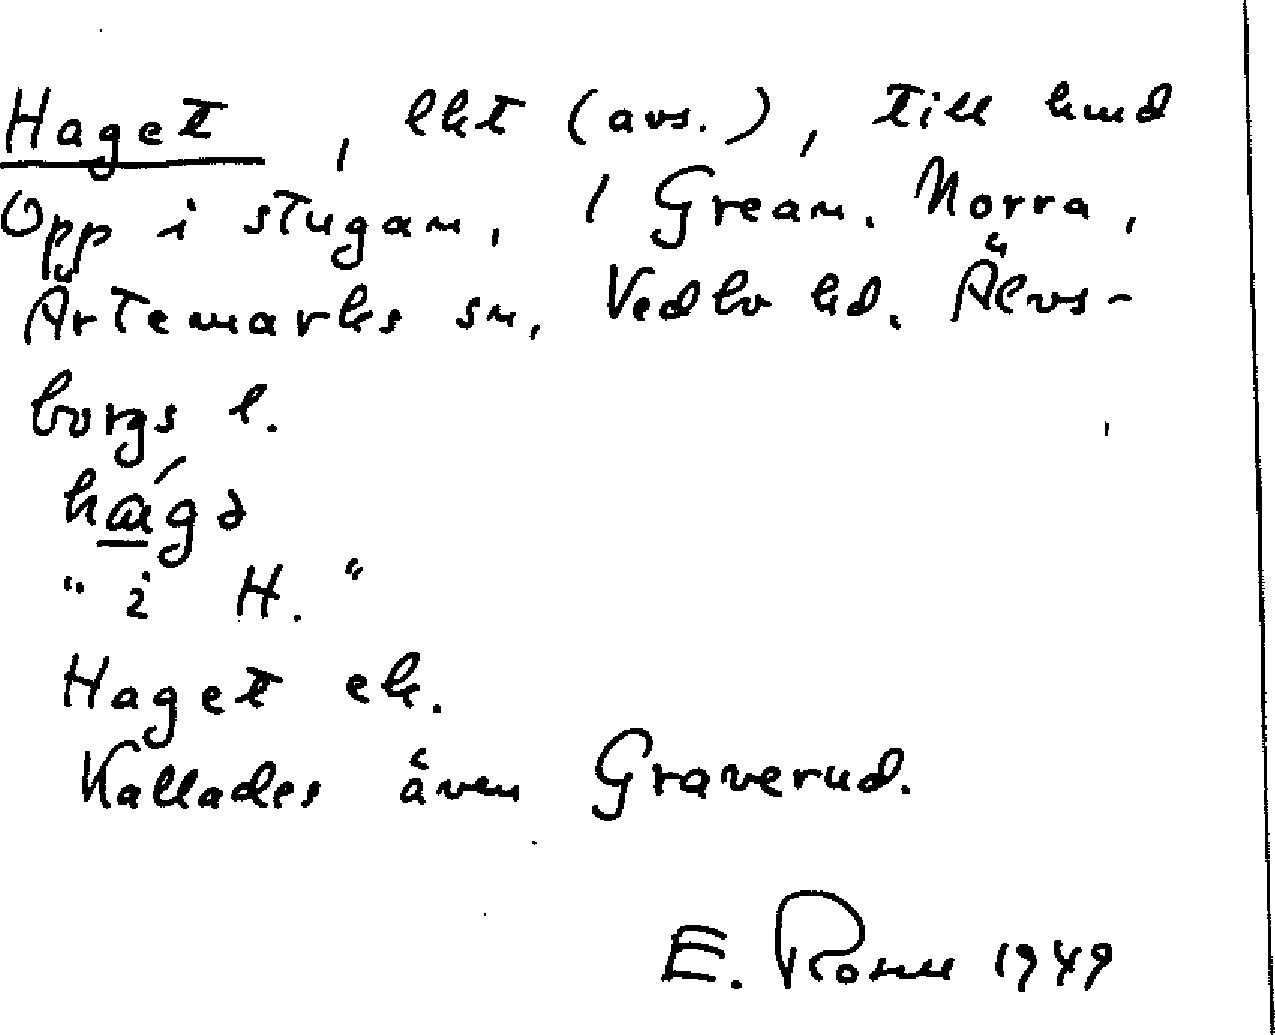 Haget, lht (avs.), till hmd
Opp i stugan, 1 Grean. Norra,
Ärtemarks sn, Vedbo hd. Älvs-
borgs l.
"i H."
Haget ek.
Kallades även Graverud.
E. Rosell 1949